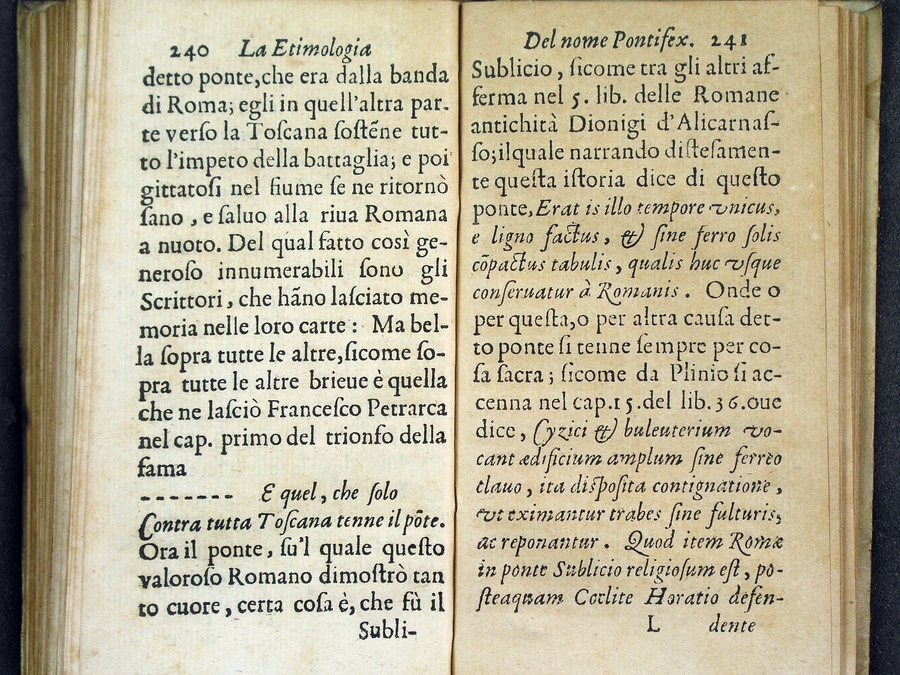 240 La Etimologia
detto ponte, che era dalla banda
di Roma; egli in quell'altra par-
te verſo la Toſcana ſoſtẽne tut-
to l'impeto della battaglia; e poi
gittatoſi nel fiume ſe ne ritornò
ſano, e ſaluo alla riua Romana
a nuoto. Del qual fatto così ge-
neroſo innumerabili ſono gli
Scrittori, che hãno laſciato me-
moria nelle loro carte: Ma bel-
la ſopra tutte le altre, ſicome ſo-
pra tutte le altre brieue è quella
che ne laſciò Franceſco Petrarca
nel cap. primo del trionfo della
fama
------- E quel, che ſolo
Contra tutta Toſcana tenne il põte.
Ora il ponte, ſu'l quale queſto
valoroſo Romano dimoſtrò tan
to cuore, certa coſa è, che fù il
Subli-
Del nome Pontifex. 241
Sublicio, ſicome tra gli altri af-
ferma nel 5. lib. delle Romane
antichità Dionigi d'Alicarnaſ-
ſo; ilquale narrando diſteſamen-
te queſta iſtoria dice di queſto
ponte, Erat is illo tempore vnicus,
e ligno factus, & ſine ferro ſolis
cõpactus tabulis, qualis huc vſque
conſeruatur à Romanis. Onde o
per queſta, o per altra cauſa det-
to ponte ſi tenne ſempre per co-
ſa ſacra; ſicome da Plinio ſi ac-
cenna nel cap. 15. del lib. 36. oue
dice, Cyzici & buleuterium vo-
cant ædificium amplum ſine ferreo
clauo, ita diſpoſita contignatione,
vt eximantur trabes ſine fulturis,
ac reponantur. Quod item Romæ
in ponte Sublicio religioſum eſt, po-
ſteaquam Coclite Horatio defen-
L dente